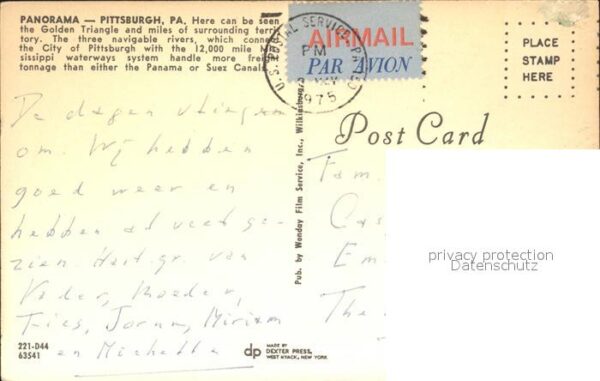 PANORAMA — PITTSBURGH, PA. Here can be seen
the Golden Triangle and miles of surrounding terri
tory. The three navigable rivers, which connec
the City of Pittsburgh with the 12,000 mile
sissippi waterways system handle more frei
tonnage than either the Panama or Suez Canals.
U.S. POSTAL SERVICE
PM
1975
AIRMAIL
PAR AVION
PLACE
STAMP
HERE
Post Card
De dagen vliegen
om. Wij hebben
goed weer en
hebben al veel ge-
zien. Hart. gr. van
Vader, Moeder,
Ties, Jorun, Miriam
en Michelle
Fam.
Cas
Em
The
privacy protection
Datenschutz
Pub. by Wonday Film Service, Inc., Wilkinsburg,
221-D44
63541
dp
MADE BY
DEXTER PRESS,
WEST NYACK, NEW YORK